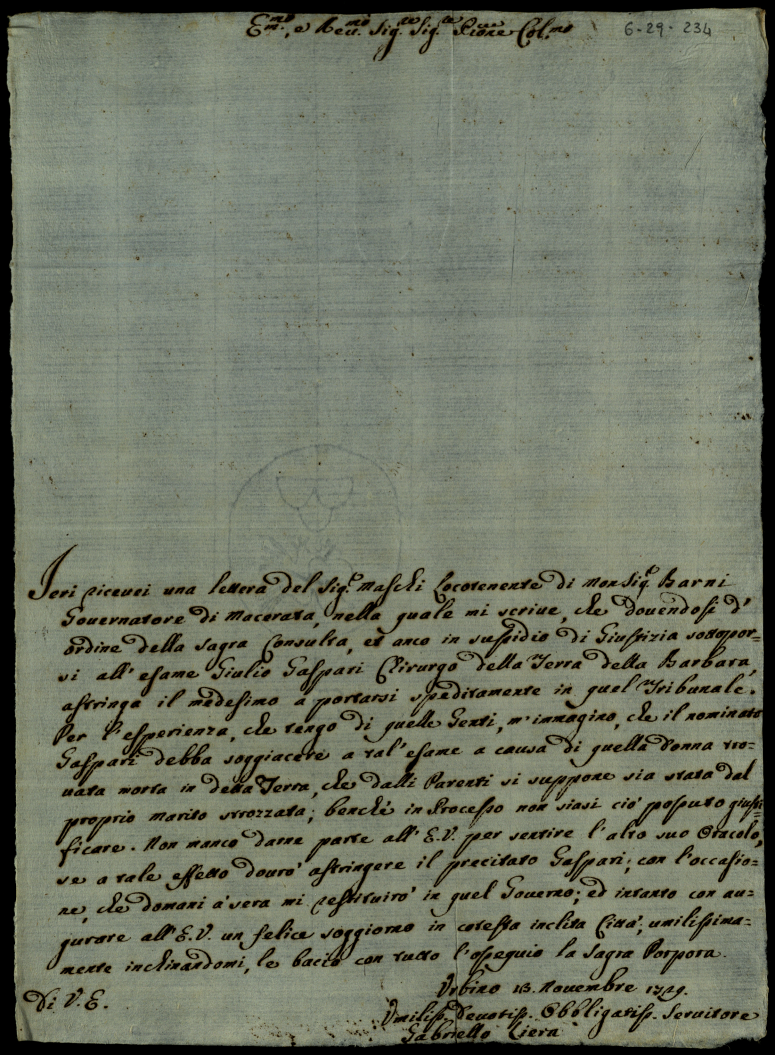 Em.mo, e Reu.mo Sig.re Sig.re P.rone Col.mo
6-29-234
Ieri riceuei una lettera del Sig.r Maschi Locotenente di Monsig.r Barni
Gouernatore di Macerata, nella quale mi scriue, che douendosi d'
ordine della Sagra Consulta, et anco in sussidio di Giustizia sottopor=
si all'esame Giulio Gaspari Chirurgo della Terra della Barbara,
astringa il medesimo a portarsi speditamente in quel Tribunale.
Per l'esperienza, che tengo di quelle Genti, m'immagino, che il nominato
Gaspari debba soggiacere a tal'esame a causa di quella Donna tro=
uata morta in detta Terra, che dalli Parenti si suppone sia stata dal
proprio marito strozzata; benché in Processo non siasi ciò possuto giusti
ficare. Non manco darne parte all'E.V. per sentire l'alto suo Oracolo,
se a tale effetto dourò astringere il precitato Gaspari; con l'occasio=
ne, che domani a sera mi restituirò in quel Gouerno; ed intanto con au=
gurare all'E.V. un felice soggiorno in cotesta inclita Città, umilissima=
mente inchinandomi, le bacio con tutto l'ossequio la Sagra Porpora.
Urbino 13. Nouembre 1729.
Di V.E.
Umiliss. Deuotiss. Obbligatiss. Seruitore
Gabriello